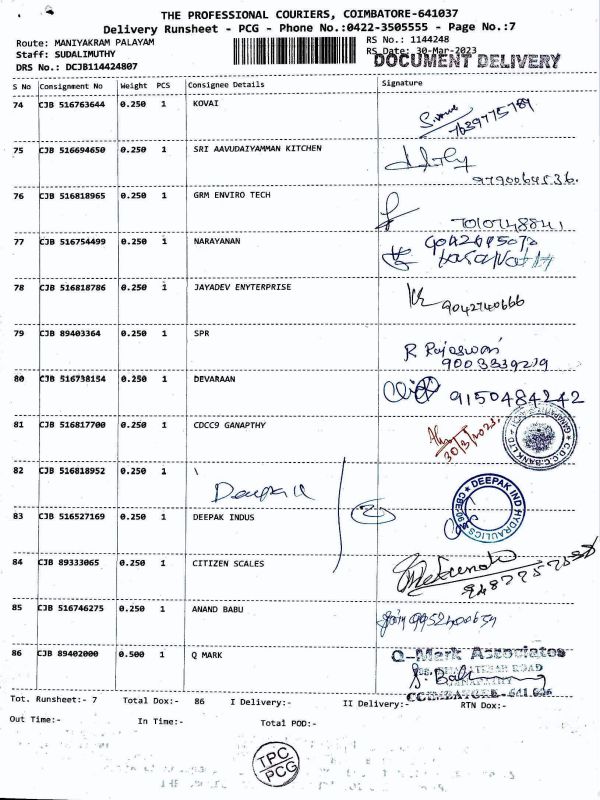 THE PROFESSIONAL COURIERS, COIMBATORE-641037
Delivery Runsheet - PCG - Phone No.:0422-3505555 - Page No.:7
Route: MANIYAKRAM PALAYAM RS No.: 1144248
Staff: SUDALIMUTHY RS Date: 30-Mar-2023
DRS No.: DCJB114424807 DOCUMENT DELIVERY
S No Consignment No Weight PCS Consignee Details Signature
74 CJB 516763644 0.250 1 KOVAI
7639775789
75 CJB 516694650 0.250 1 SRI AAVUDAIYAMMAN KITCHEN
76 CJB 516818965 0.250 1 GRM ENVIRO TECH
7010748841
77 CJB 516754499 0.250 1 NARAYANAN
78 CJB 516818786 0.250 1 JAYADEV ENYTERPRISE
9042740666
79 CJB 89403364 0.250 1 SPR
R Rajeswari
9003339279
80 CJB 516738154 0.250 1 DEVARAAN
9150484242
81 CJB 516817700 0.250 1 CDCC9 GANAPTHY
30/3/2023
82 CJB 516818952 0.250 1 \
83 CJB 516527169 0.250 1 DEEPAK INDUS
DEEPAK IND HYDRAULICS
84 CJB 89333065 0.250 1 CITIZEN SCALES
85 CJB 516746275 0.250 1 ANAND BABU
9952400634
86 CJB 89402000 0.500 1 Q MARK
Q-Mark Associates
COIMBATORE - 641 006
Tot. Runsheet:- 7 Total Dox:- 86 I Delivery:- II Delivery:- RTN Dox:-
Out Time:- In Time:- Total POD:-
TPC
PCG